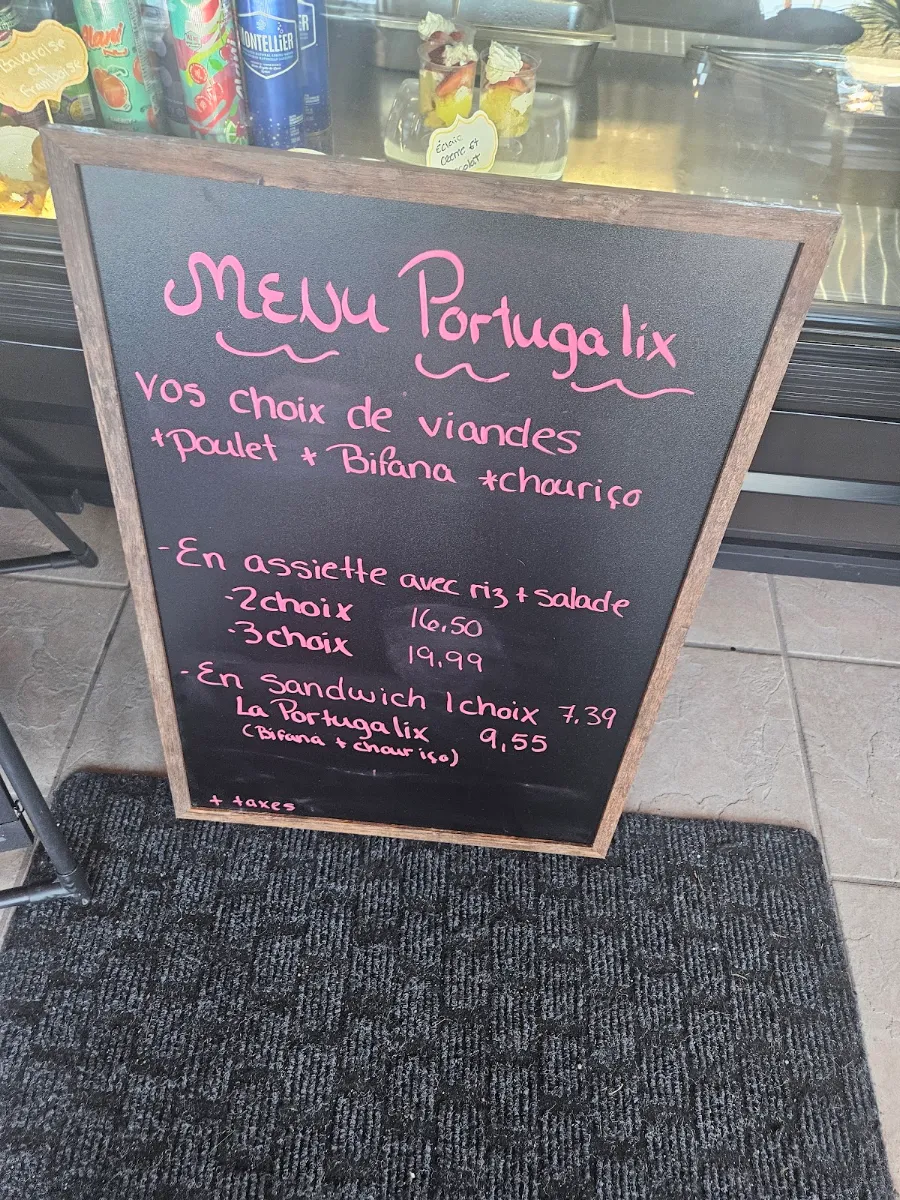 MONTELLiER
et
framboise
Éclair
creme et
MENU Portugalix
Vos choix de viandes
*Poulet * Bifana *chouriço
-En assiette avec riz + salade
-2choix 16.50
-3choix 19.99
-En sandwich 1choix 7.39
La Portugalix 9,55
(Bifana + chouriço)
+ taxes